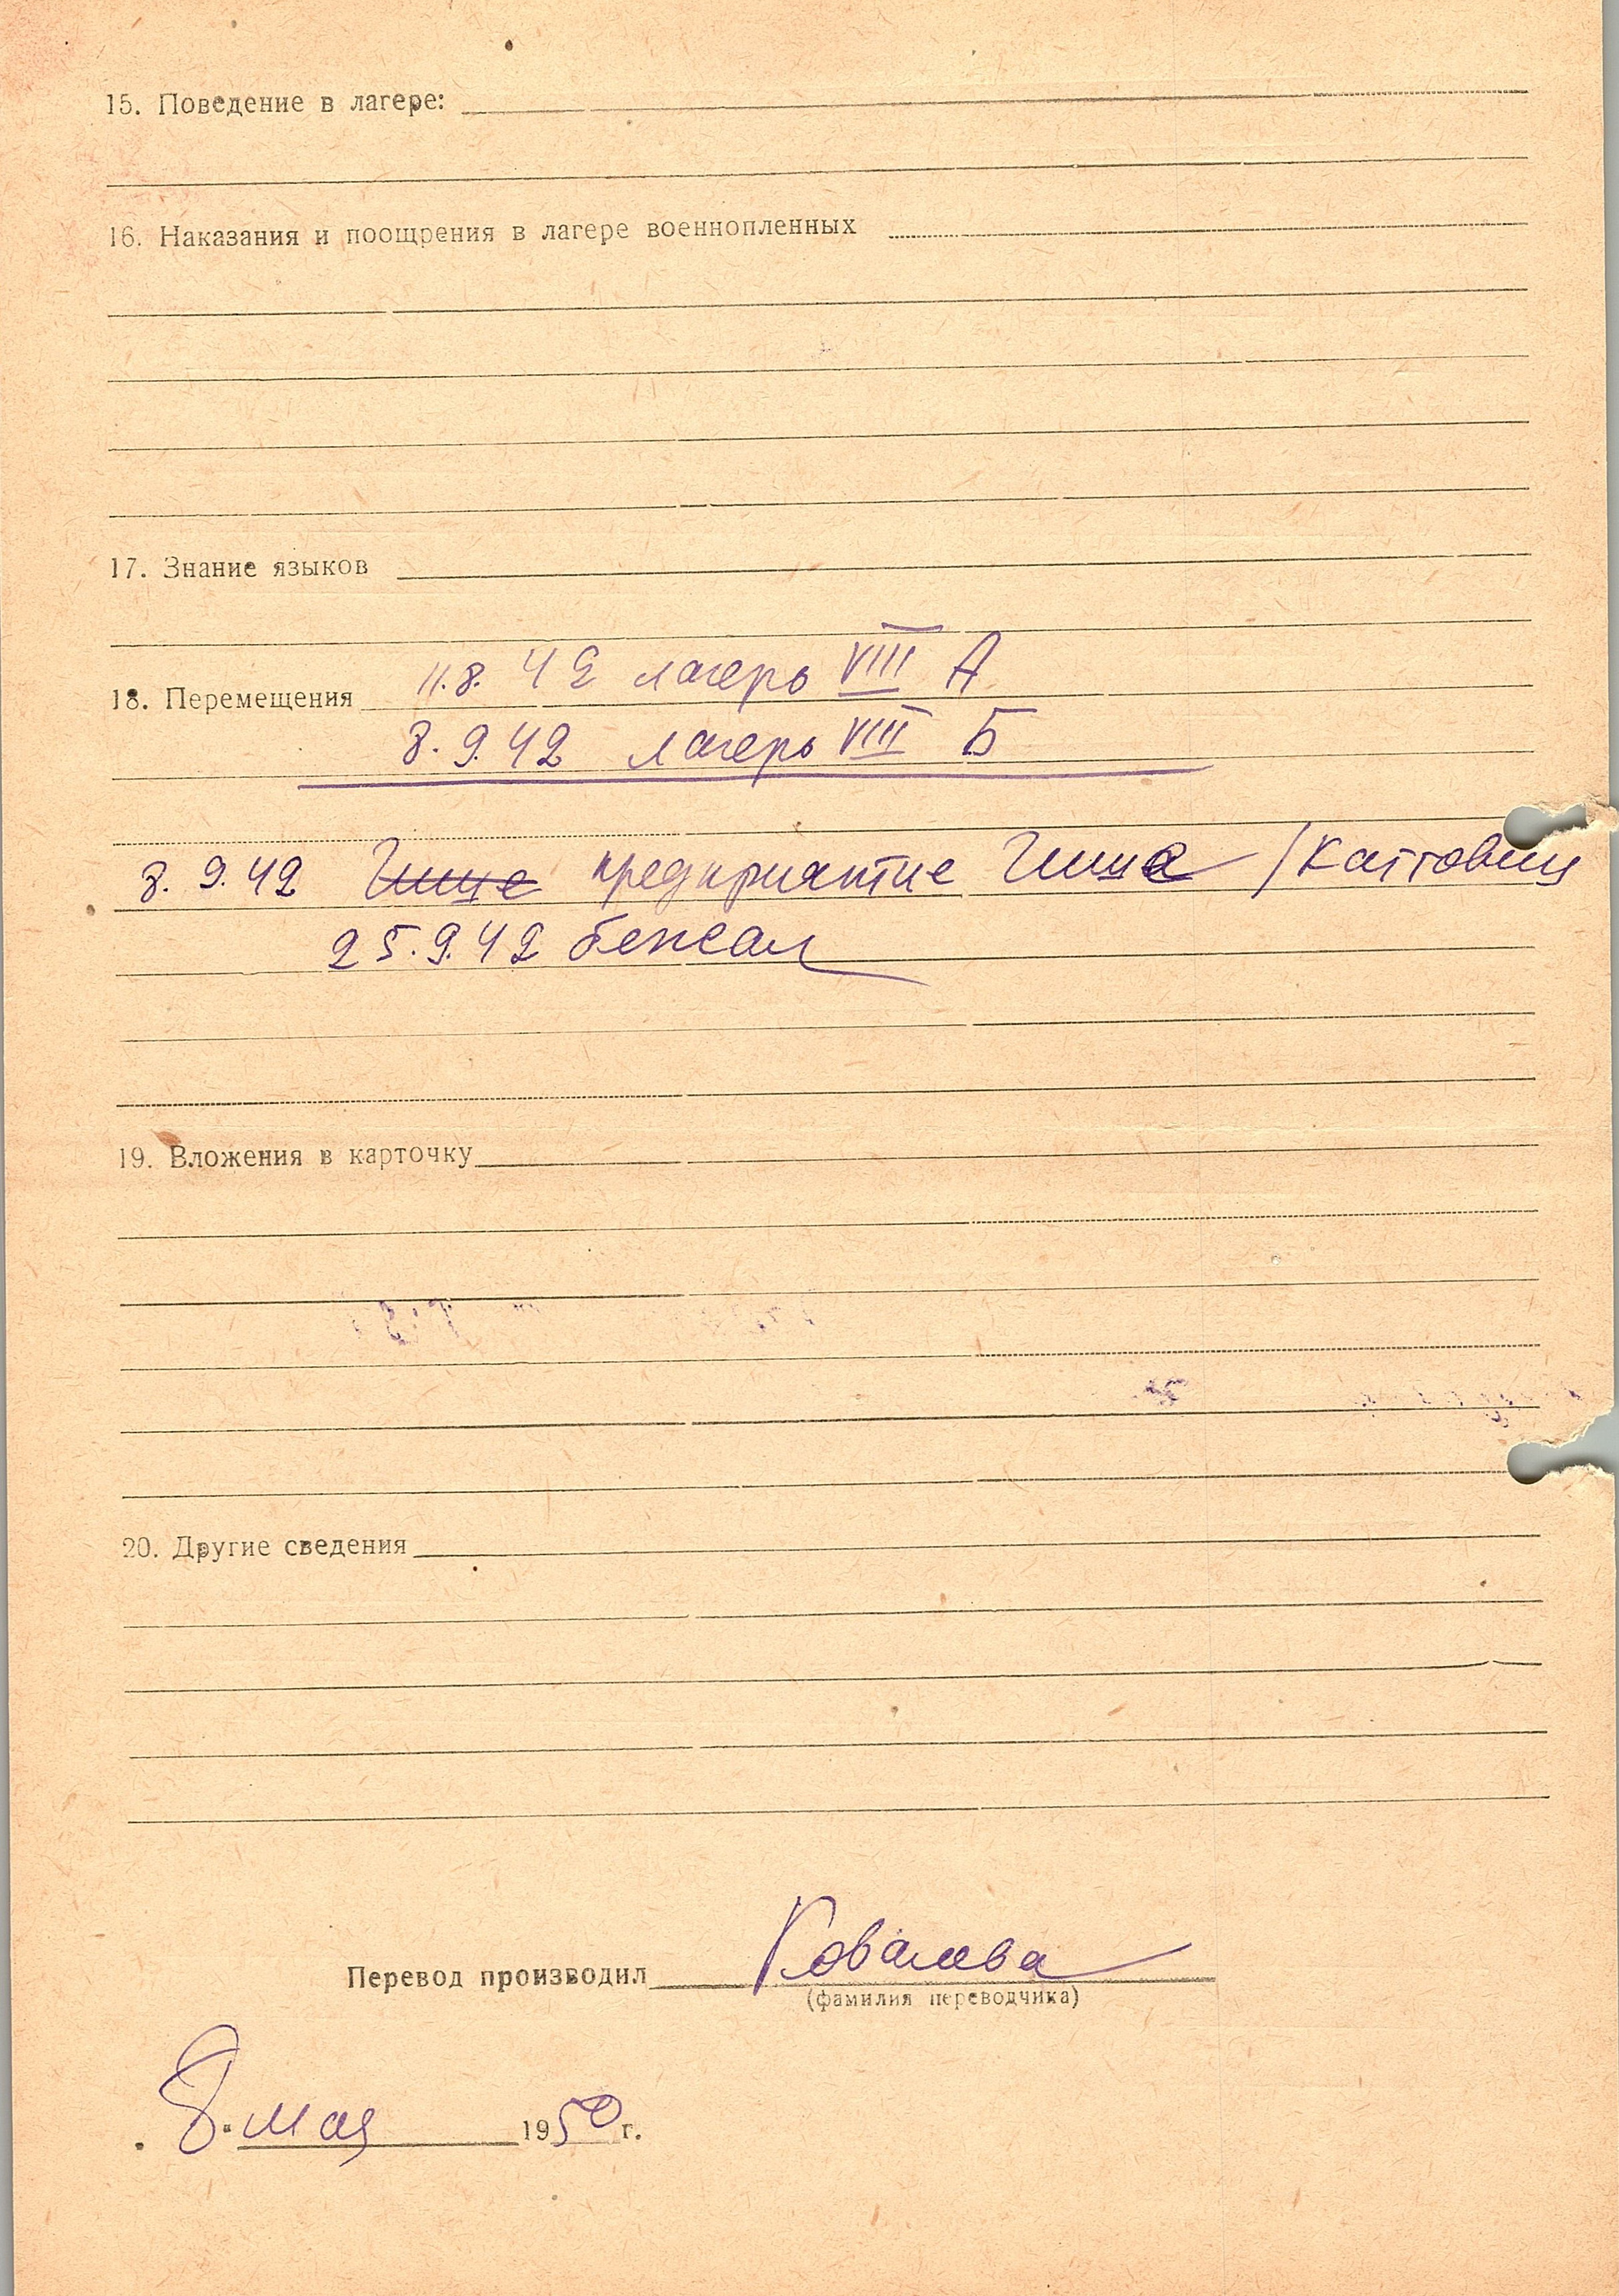 15. Поведение в лагере:
16. Наказания и поощрения в лагере военнопленных
17. Знание языков
11.8. 42 лагерь VIII А
18. Перемещения
8. 9. 42 лагерь VIII Б
8. 9. 42 Гише предприятие Гише / Каттовиц
25.9.42 бежал
19. Вложения в карточку
20. Другие сведения
Перевод производил Ковалева
(фамилия переводчика)
8. мая 1950 г.